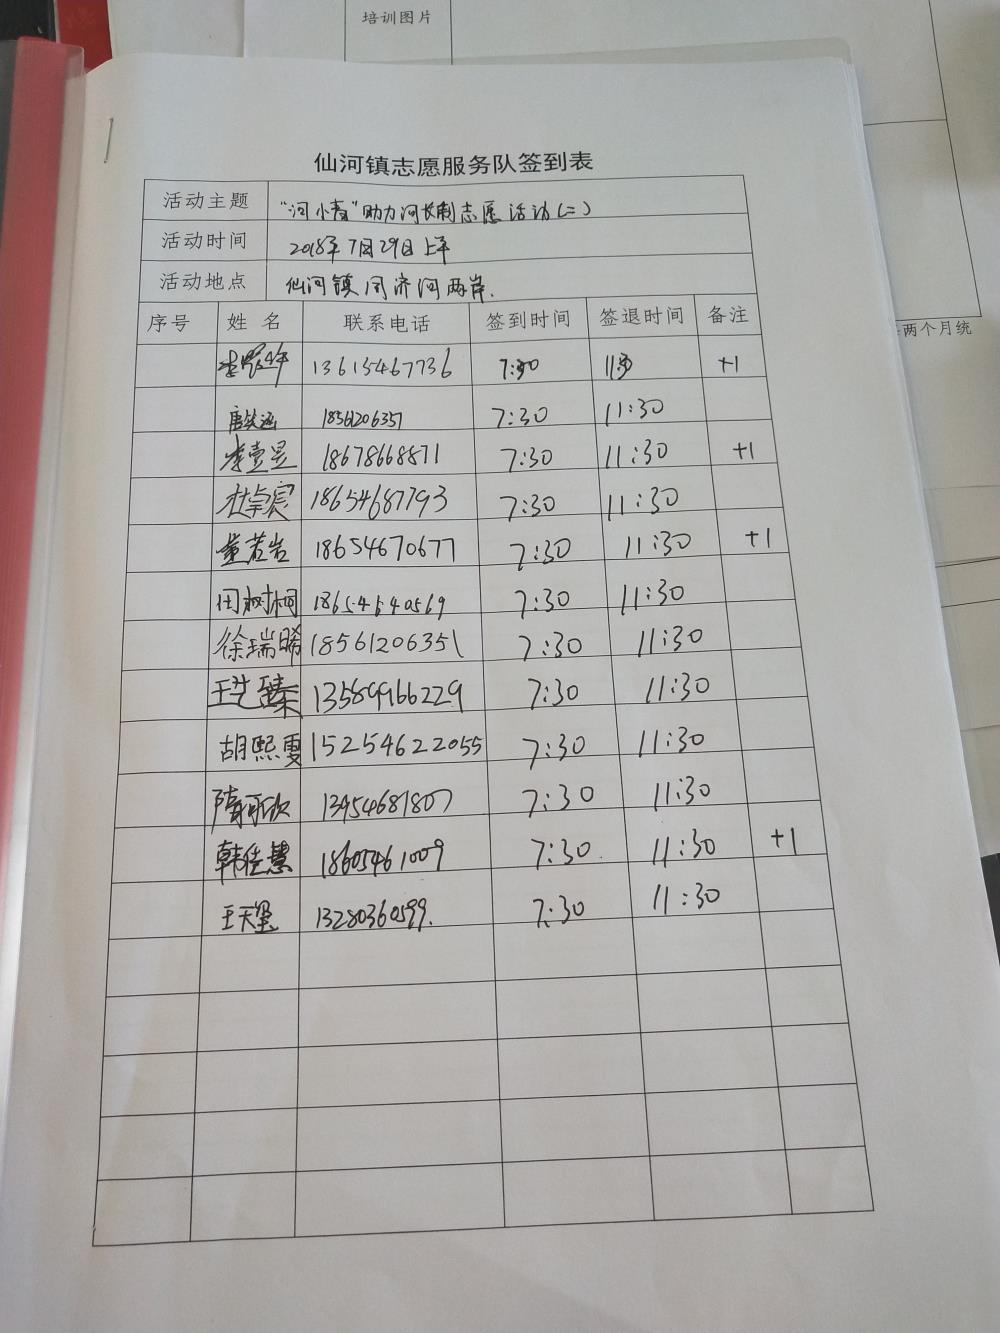 培训图片
仙河镇志愿服务队签到表
活动主题 "河小青"助力河长制志愿活动(二)
活动时间 2018年7月29日上午
活动地点 仙河镇同济河两岸.
序号 姓名 联系电话 签到时间 签退时间 备注
每两个月统
13615467736 7:30 11:30 +1
唐笑涵 18561206351 7:30 11:30
李壹昱 18678668871 7:30 11:30 +1
杜卓宸 18654687793 7:30 11:30
董若岩 18654670677 7:30 11:30 +1
田树桐 18654640569 7:30 11:30
徐瑞晞 18561206351 7:30 11:30
王艺臻 13589966229 7:30 11:30
胡熙雯 15254622055 7:30 11:30
隋可欣 13954681807 7:30 11:30
韩佳慧 18605461009 7:30 11:30 +1
王天玺 13280360599. 7:30 11:30